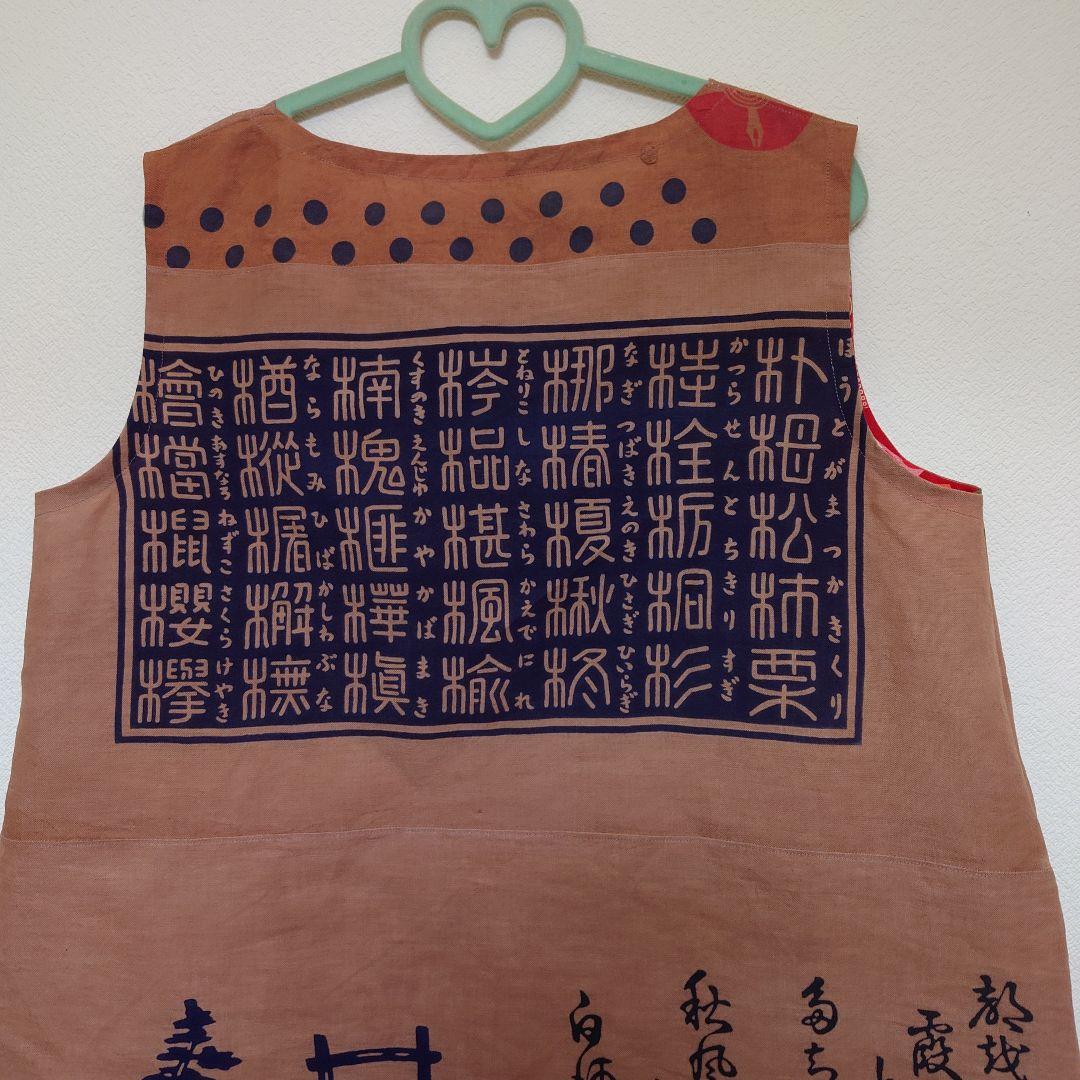 朴栂松柿栗
ほうとがまつかきくり
桂栓栃桐杉
かつらせんとちきりすぎ
梛椿榎楸柊
なぎつばきえのきひさぎひいらぎ
梣榀椹楓楡
とねりこしなさわらかえでにれ
楠槐榧樺槇
くすのきえんじゅかやかばまき
楢樅檞橅
ならもみひばかしわぶな
檜檔櫻欅
ひのきあすなろねずこさくらけやき
都越
霞
秋風
白河